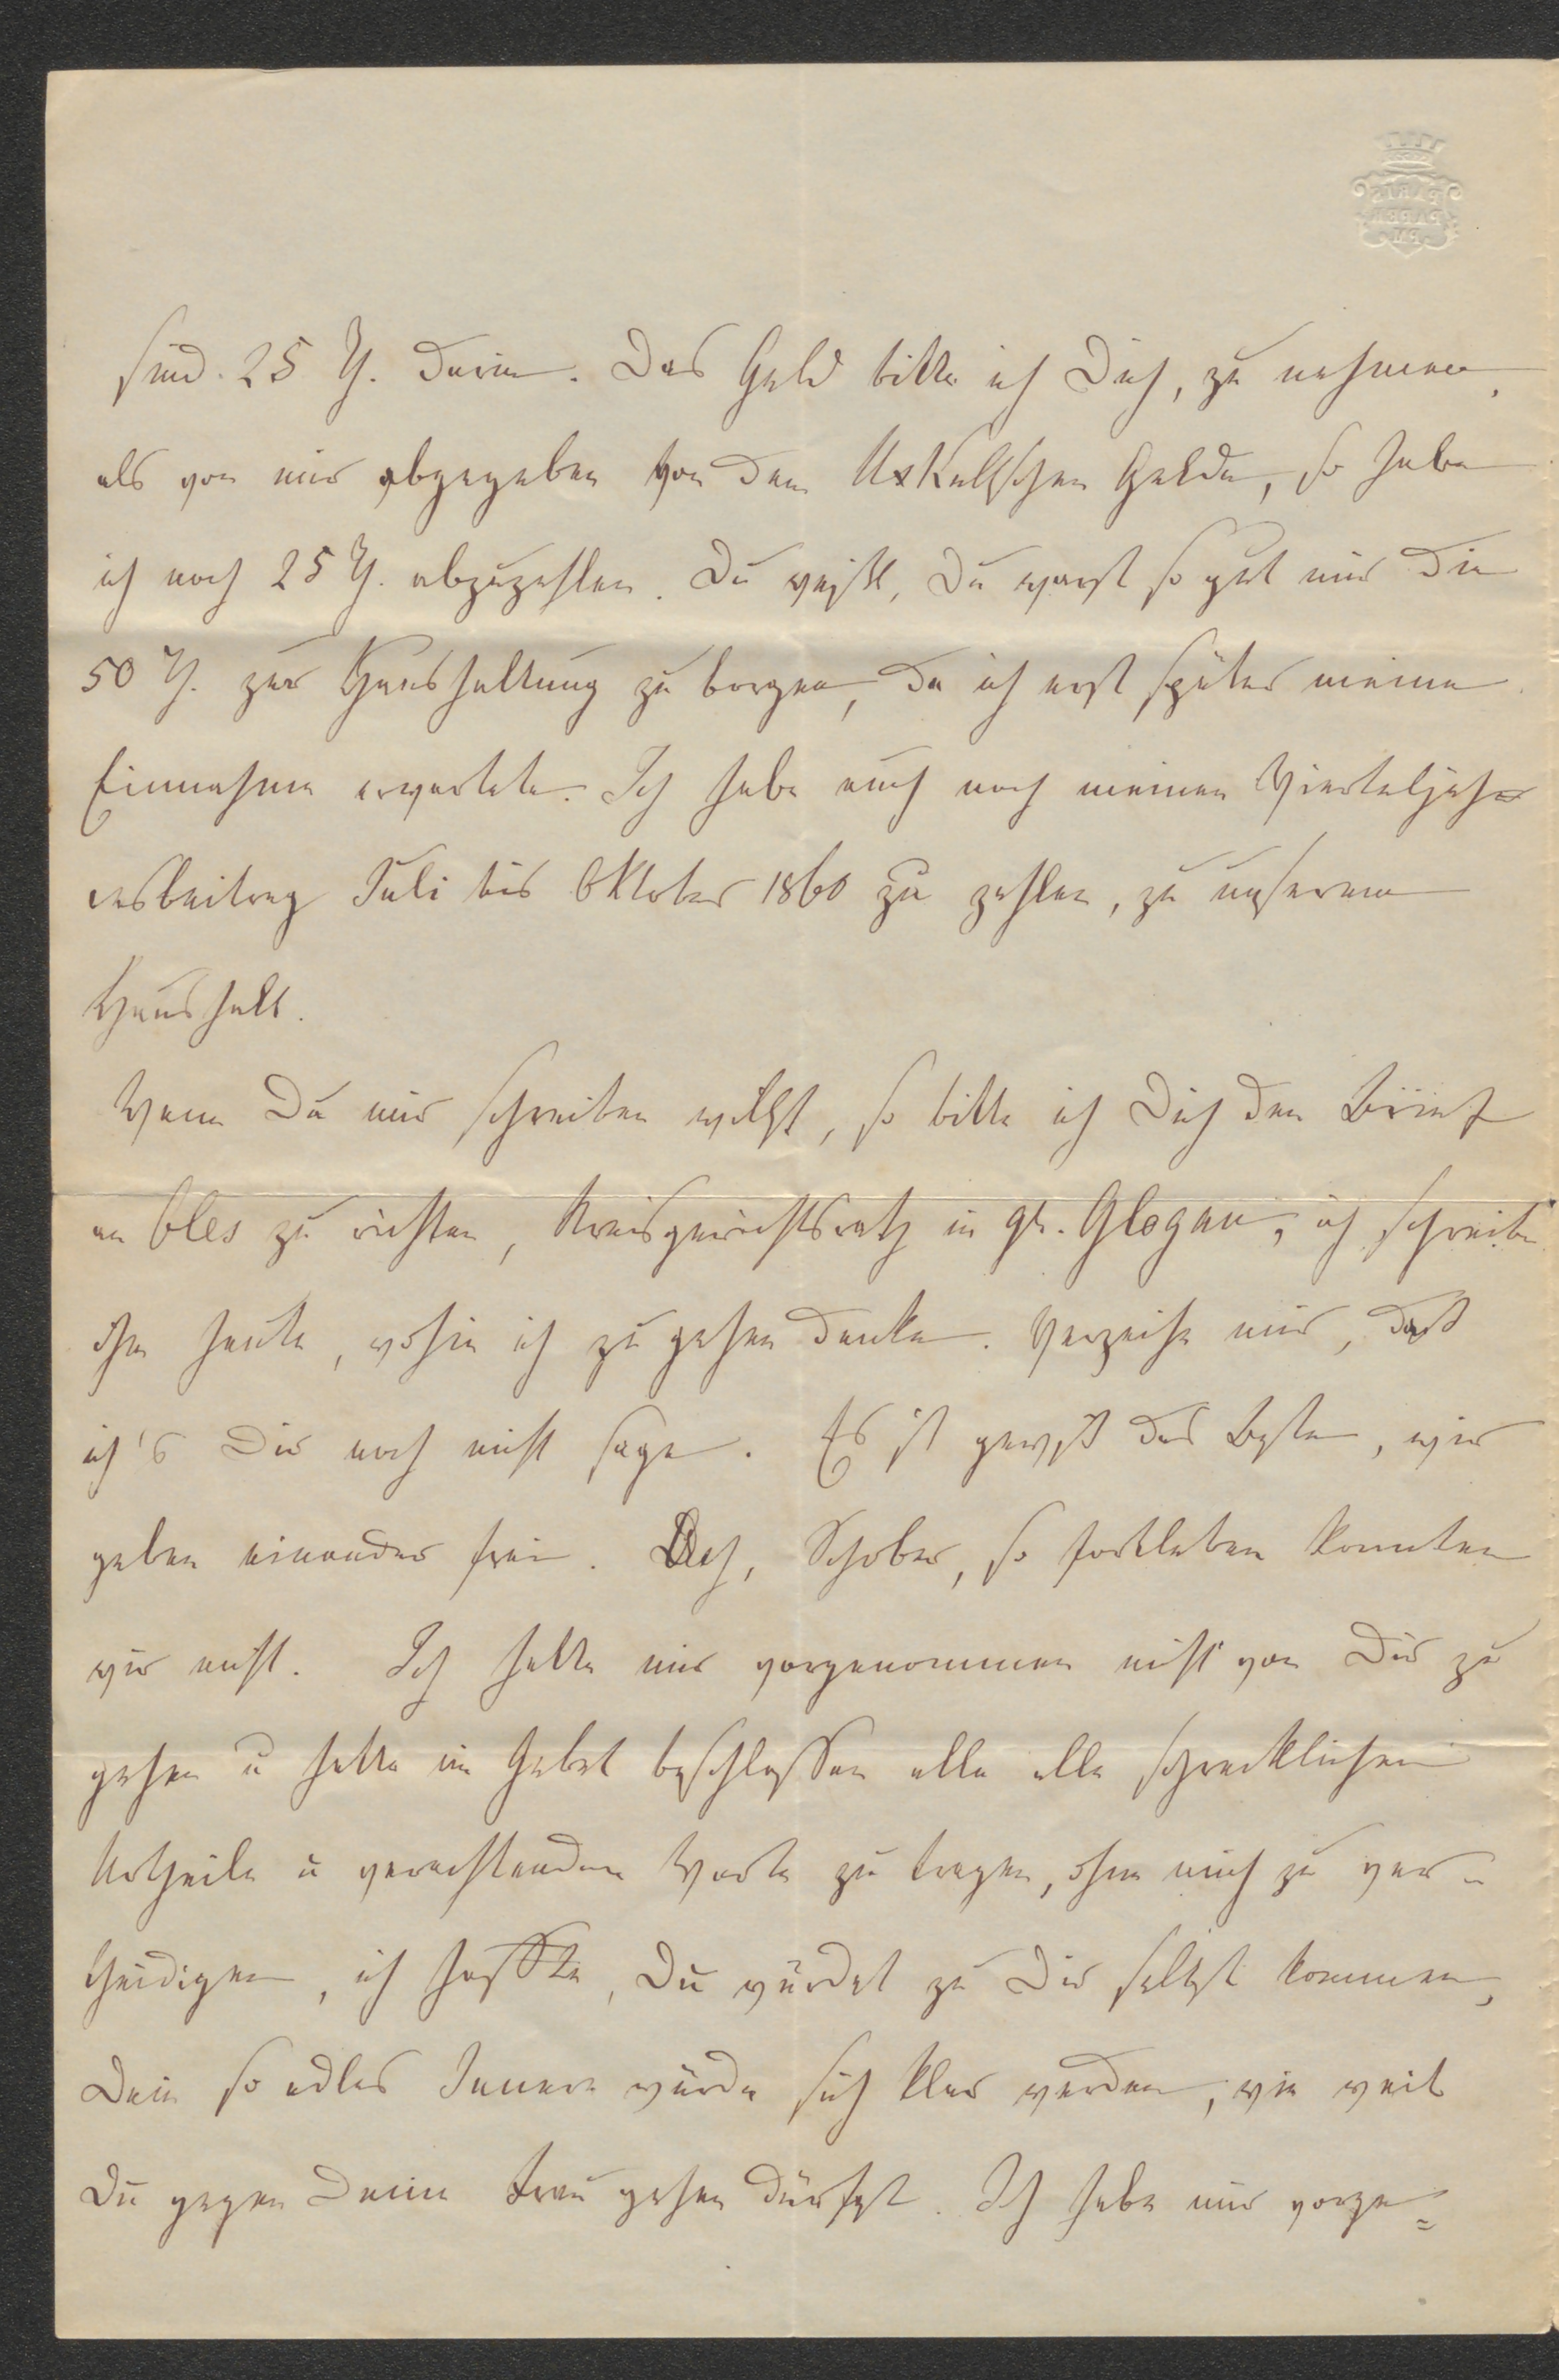 sind 25 rh. darin. Das Geld bitte ich Dich, zu nehmen,
als von mir abgegeben von dem Uxkullschen Gelde, so habe
ich noch 25 rh. abzuzahlen. Du weißt, Du warst so gut mir die
50 rh. zur Haushaltung zu borgen, da ich erst später meine
Einnahme erwartete. Ich habe auch noch meinen Vierteljah-
resbeitrag Juli bis Oktober 1860 zu zahlen, zu unserem
Haushalt.
Wenn Du mir schreiben willst, so bitte ich Dich den Brief
an Eles zu richten, Kreisgerichtsrath in gr. Glogau, ich schreibe
ihm heute, wohin ich zu gehen denke. Verzeihe mir, daß
ich's Dir noch nicht sage. Es ist gewiß das Beste, wir
geben einander frei. Ach, Schober, so fortleben konnten
wir nicht. Ich hatte mir vorgenommen nicht von Dir zu
gehen u hatte im Gebet beschlossen alle alle schrecklichen
Urtheile u verachtenden Worte zu tragen, ohne mich zu ver-
theidigen, ich hoffte, Du würdet zu Dir selbst kommen,
Dein so edles Innere würde sich klar werden, wie weit
Du gegen Deine Frau gehen dürfest. Ich habe mir vorge=